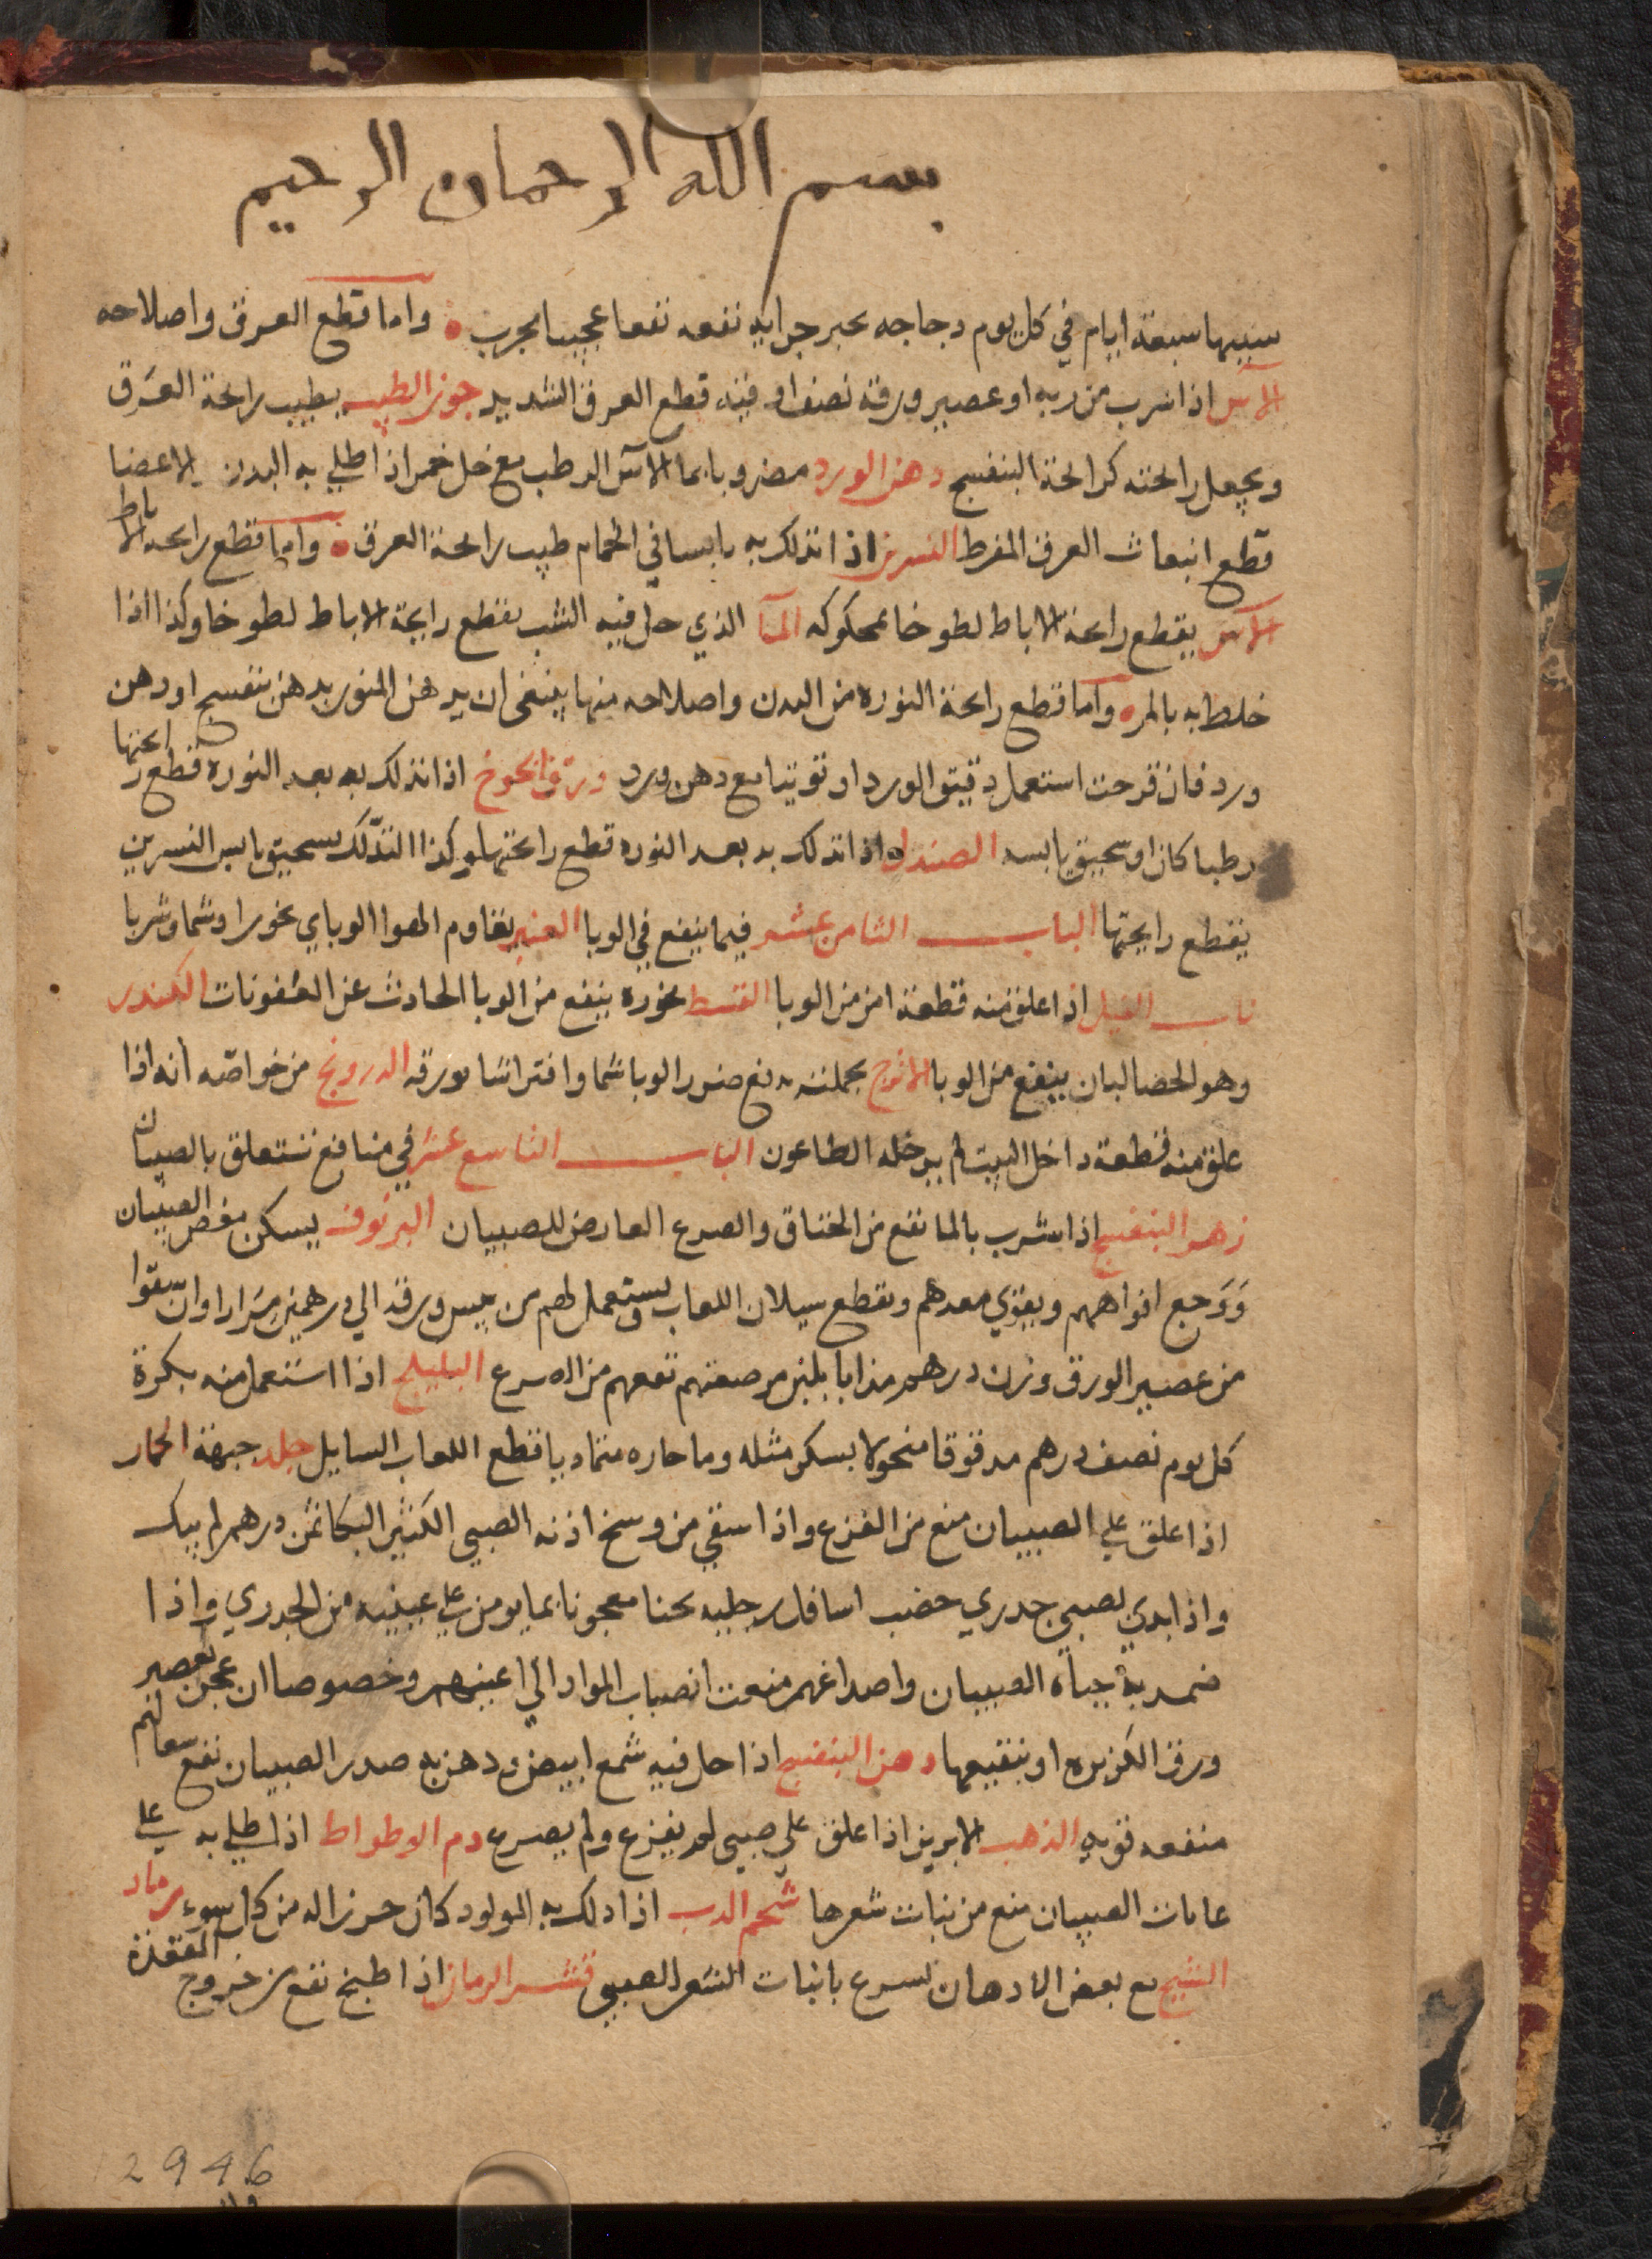 بسم الله الرحمان الرحيم
سببها سبعة ايام في كل يوم دجاجه بجبر جرايه نفعه نفعا عجيبا مجرب واما قطع العرق واصلاحه
الاس اذا شرب من ربه او عصير ورقه نصف اوقيه قطع العرق الشديد جوز الطيب يطيب رايحة العرق
ويجعل رايحته كرايحة البنفسج دهن الورد مضروبا بما الآس الرطب مع خل خمر اذا طلي به البدن والاعضا
قطع انبعاث العرق المفرط النسرين اذا تدلك به يابسا في الحمام طيب رايحة العرق واما قطع رايحه الاباط
الاس يقطع رايحة الاباط لطوخا بمحكوكه المآ الذي حل فيه الشب يقطع رايحة الاباط لطوخا وكذا اذا
خلط به بالمر واما قطع رايحة النوره من البدن واصلاحه منها ينبغي ان يدهن المنور بدهن بنفسج او دهن
ورد فان قرحت استعمل دقيق الورد او توتيا مع دهن ورد ورق الخوخ اذا تدلك به بعد النوره قطع رايحتها
رطبا كان او سحيق يابسه الصندل اذا تدلك به بعد النوره قطع رايحتها وكذا التدلك بسحيق يابس النسرين
يقطع رايحتها الباب الثامن عشر فيما ينفع في الوبا العنبر يقاوم الهوا الوباي بخورا وشما وشربا
ناب الفيل اذا علق منه قطعة امن من الوبا القسط بخوره ينفع من الوبا الحادث عن العفونات الكندر
وهو الحصالبان ينفع من الوبا الاترج بجملته يدفع ضرر الوبا شما وافتراشا بورقه الدرونج من خواصه انه اذا
علق منه قطعة داخل البيت لم يدخله الطاعون الباب التاسع عشر في منافع تتعلق بالصبيان
زهر البنفسج اذا شرب بالما نفع من الخناق والصرع العارض للصبيان البرنوف يسكن مغص الصبيان
ووجع افواههم ويقوي معدهم ويقطع سيلان اللعاب ويستعمل لهم من يبس ورقه الى درهمين مرارا وان سقوا
من عصير الورق وزن درهم مذابا بلبن مرضعتهم نفعهم من الصرع البليلج اذا استعمل منه بكرة
كل يوم نصف درهم مدقوقا منخولا بسكر مثله وما حاره متماديا قطع اللعاب السايل جلد جبهة الحمار
اذا علق على الصبيان منع من الفزع واذا سقي من وسخ اذنه الصبي الكثير البكا ثمن درهم لم يبك
واذا بدي لصبي جدري خضب اسافل رجليه بحنا معجونا بما يومن على عينيه من الجدري واذا
ضمد به جباة الصبيان واصداغهم منعت انصباب المواد الي اعينهم وخصوصا ان عجن بعصير
ورق الكزبره او بنقيعها دهن البنفسج اذا حل فيه شمع ابيض ودهن به صدر الصبيان نفع سعالهم
منفعه قويه الذهب الابريز اذا علق على صبي لم يفزع ولم يصرع دم الوطواط اذا طلي به على
عانات الصبيان منع من نبات شعرها شحم الدب اذا دلك به المولود كان حرزا له من كل سوء رماد
الشيح مع بعض الادهان يسرع بانبات الشعر الصبي قشر الرمان اذا طبخ نفع من خروج المقعدة
12946